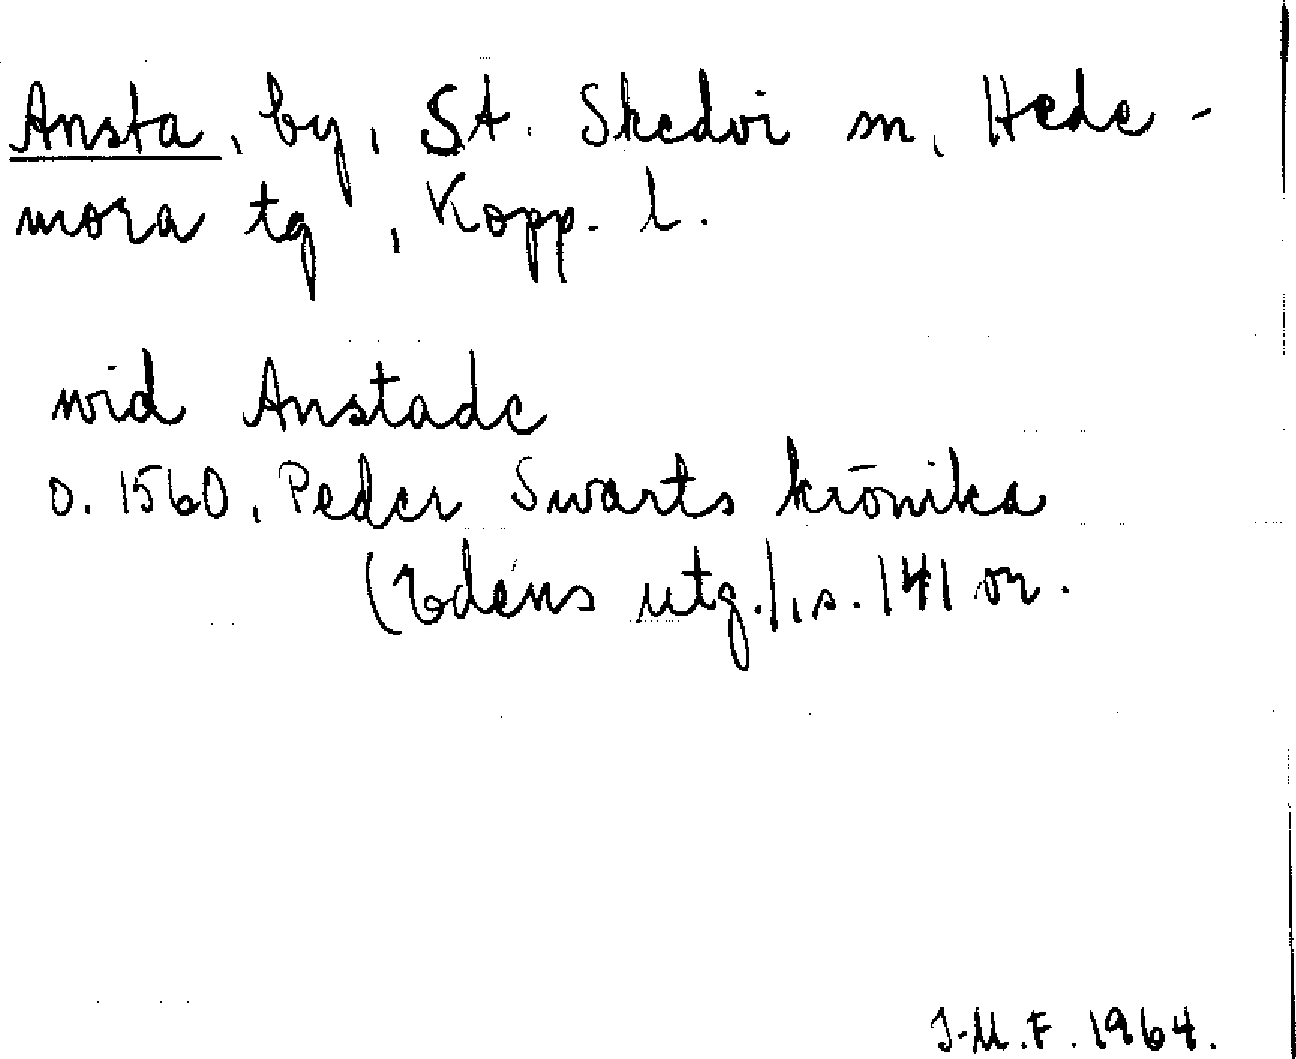 Ansta, by, St. Skedvi sn, Hede-
mora tg, Kopp. l.
wid Anstade
o. 1560, Peder Swarts krönika
(Edéns utg.), s. 141 or.
J-M.F. 1964.